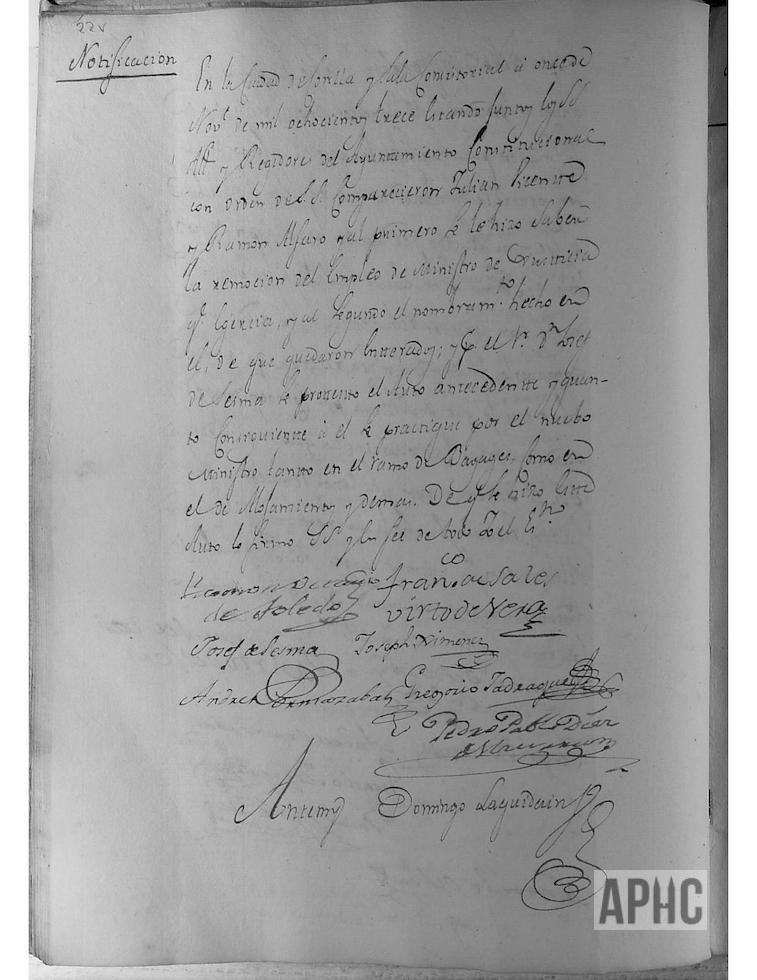 22v
Notificacion
En la Ciudad de Corella y Sala Consistorial à once de
Nov.e de mil ochocientos trece estando juntos los SS.
All.e y Regidores del Ayuntamiento Constitucional
con orden de S.S. Comparecieron Julian Vicente
y Ramon Alfaro y al primero se le hizo saber
la remocion del Empleo de Ministro de Justicia
q.e egercia, y al segundo el nombram.to hecho en
el, de que quedaron enterados; y p.r el S.r D.n Josef
de Sesma se protesto el Auto antecedente y quan-
to consiguiente à el se practique por el nuebo
Ministro tanto en el ramo de Bagages, como en
el de Alojamientos y demas. De q.e se hizo este
Auto lo firmo SS.a y en fee de todo Yo el Es.no
de Toledo
Fran.co de Sales
Virto de Vera
Josef de Sesma
Joseph Ximenez
Andres Ormazabal
Gregorio Jadraque
Pedro Pablo Diaz
Antemy Domingo Laquidain
APHC